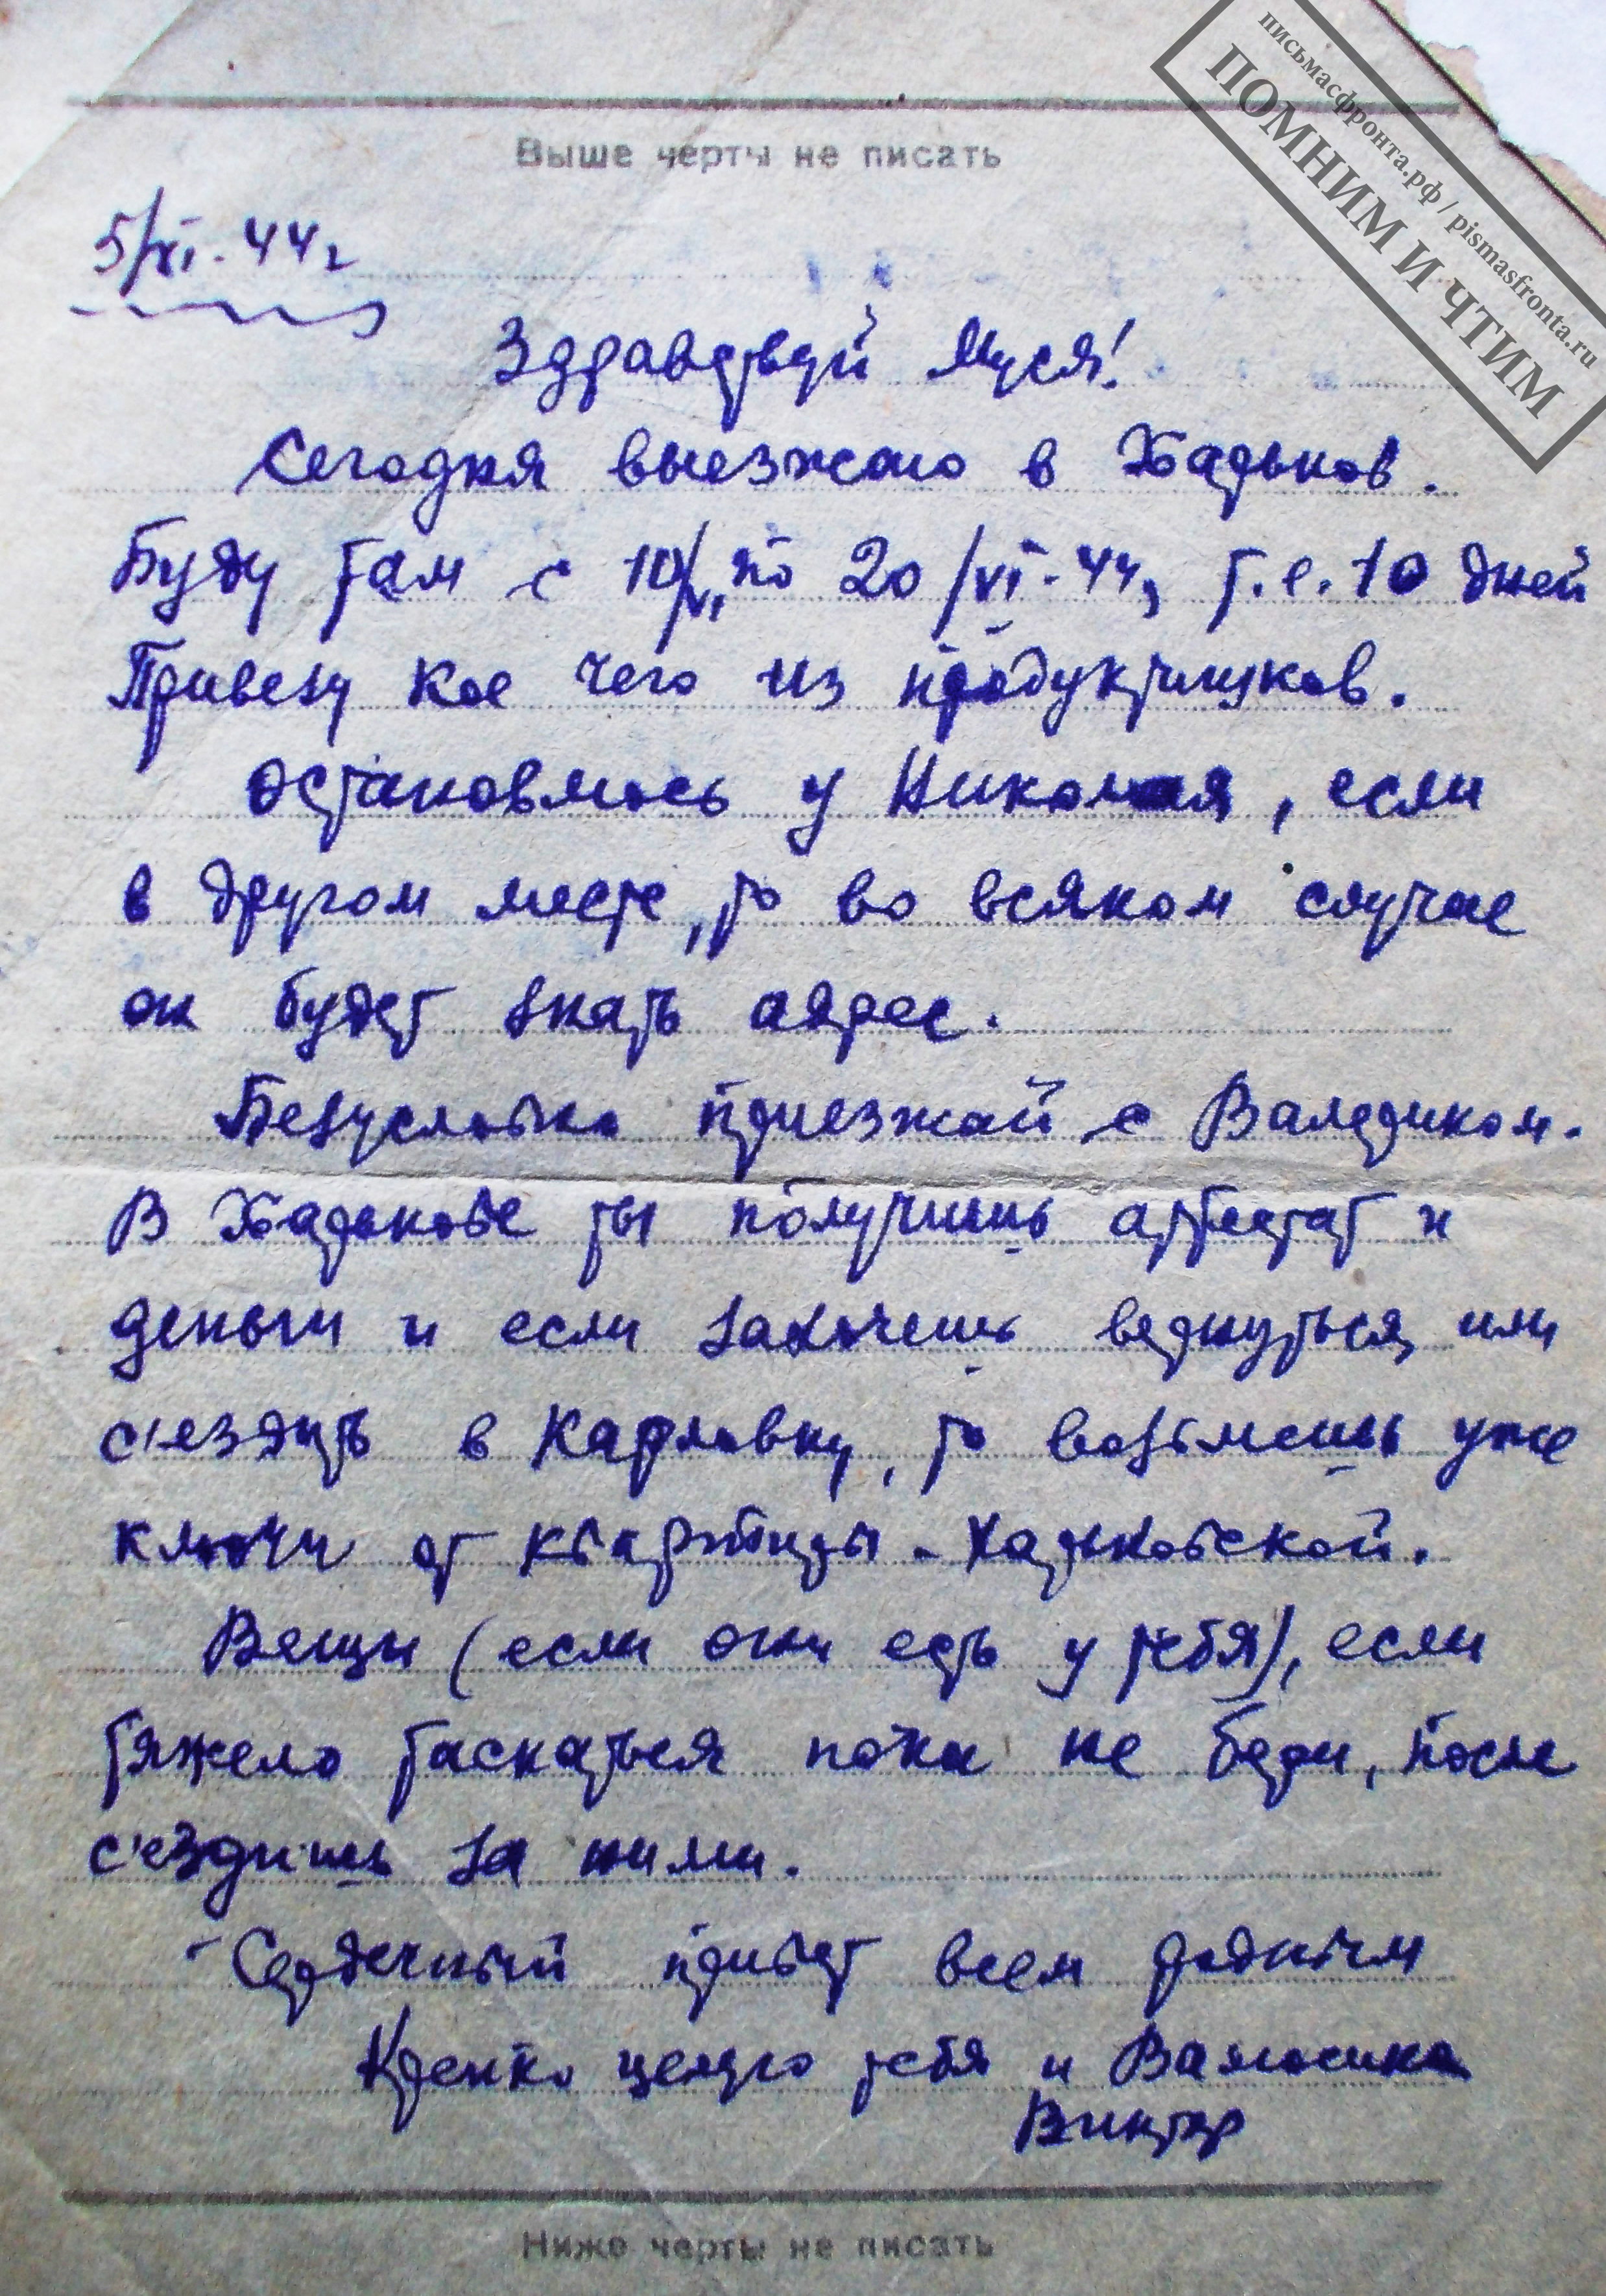 письмасфронта.рф / pismasfronta.ru
ПОМНИМ И ЧТИМ
Выше черты не писать
5/VI-44г
Здравствуй Муся!
Сегодня выезжаю в Харьков.
Буду там с 10/VI по 20/VI-44, т.е. 10 дней
Привезу кое чего из продуктишков.
Остановлюсь у Николая, если
в другом месте, то во всяком случае
он будет знать адрес.
Безусловно приезжай с Валериком.
В Харькове ты получишь аттестат и
деньги и если захочешь вернуться, или
с'ездить в Карловку, то возьмешь уже
ключи от квартиры - Харьковской.
Вещи (если они есть у тебя), если
тяжело таскаться пока не бери, после
с'ездишь за ними.
Сердечный привет всем родным
Крепко целую тебя и Валюсика
Виктор
Ниже черты не писать